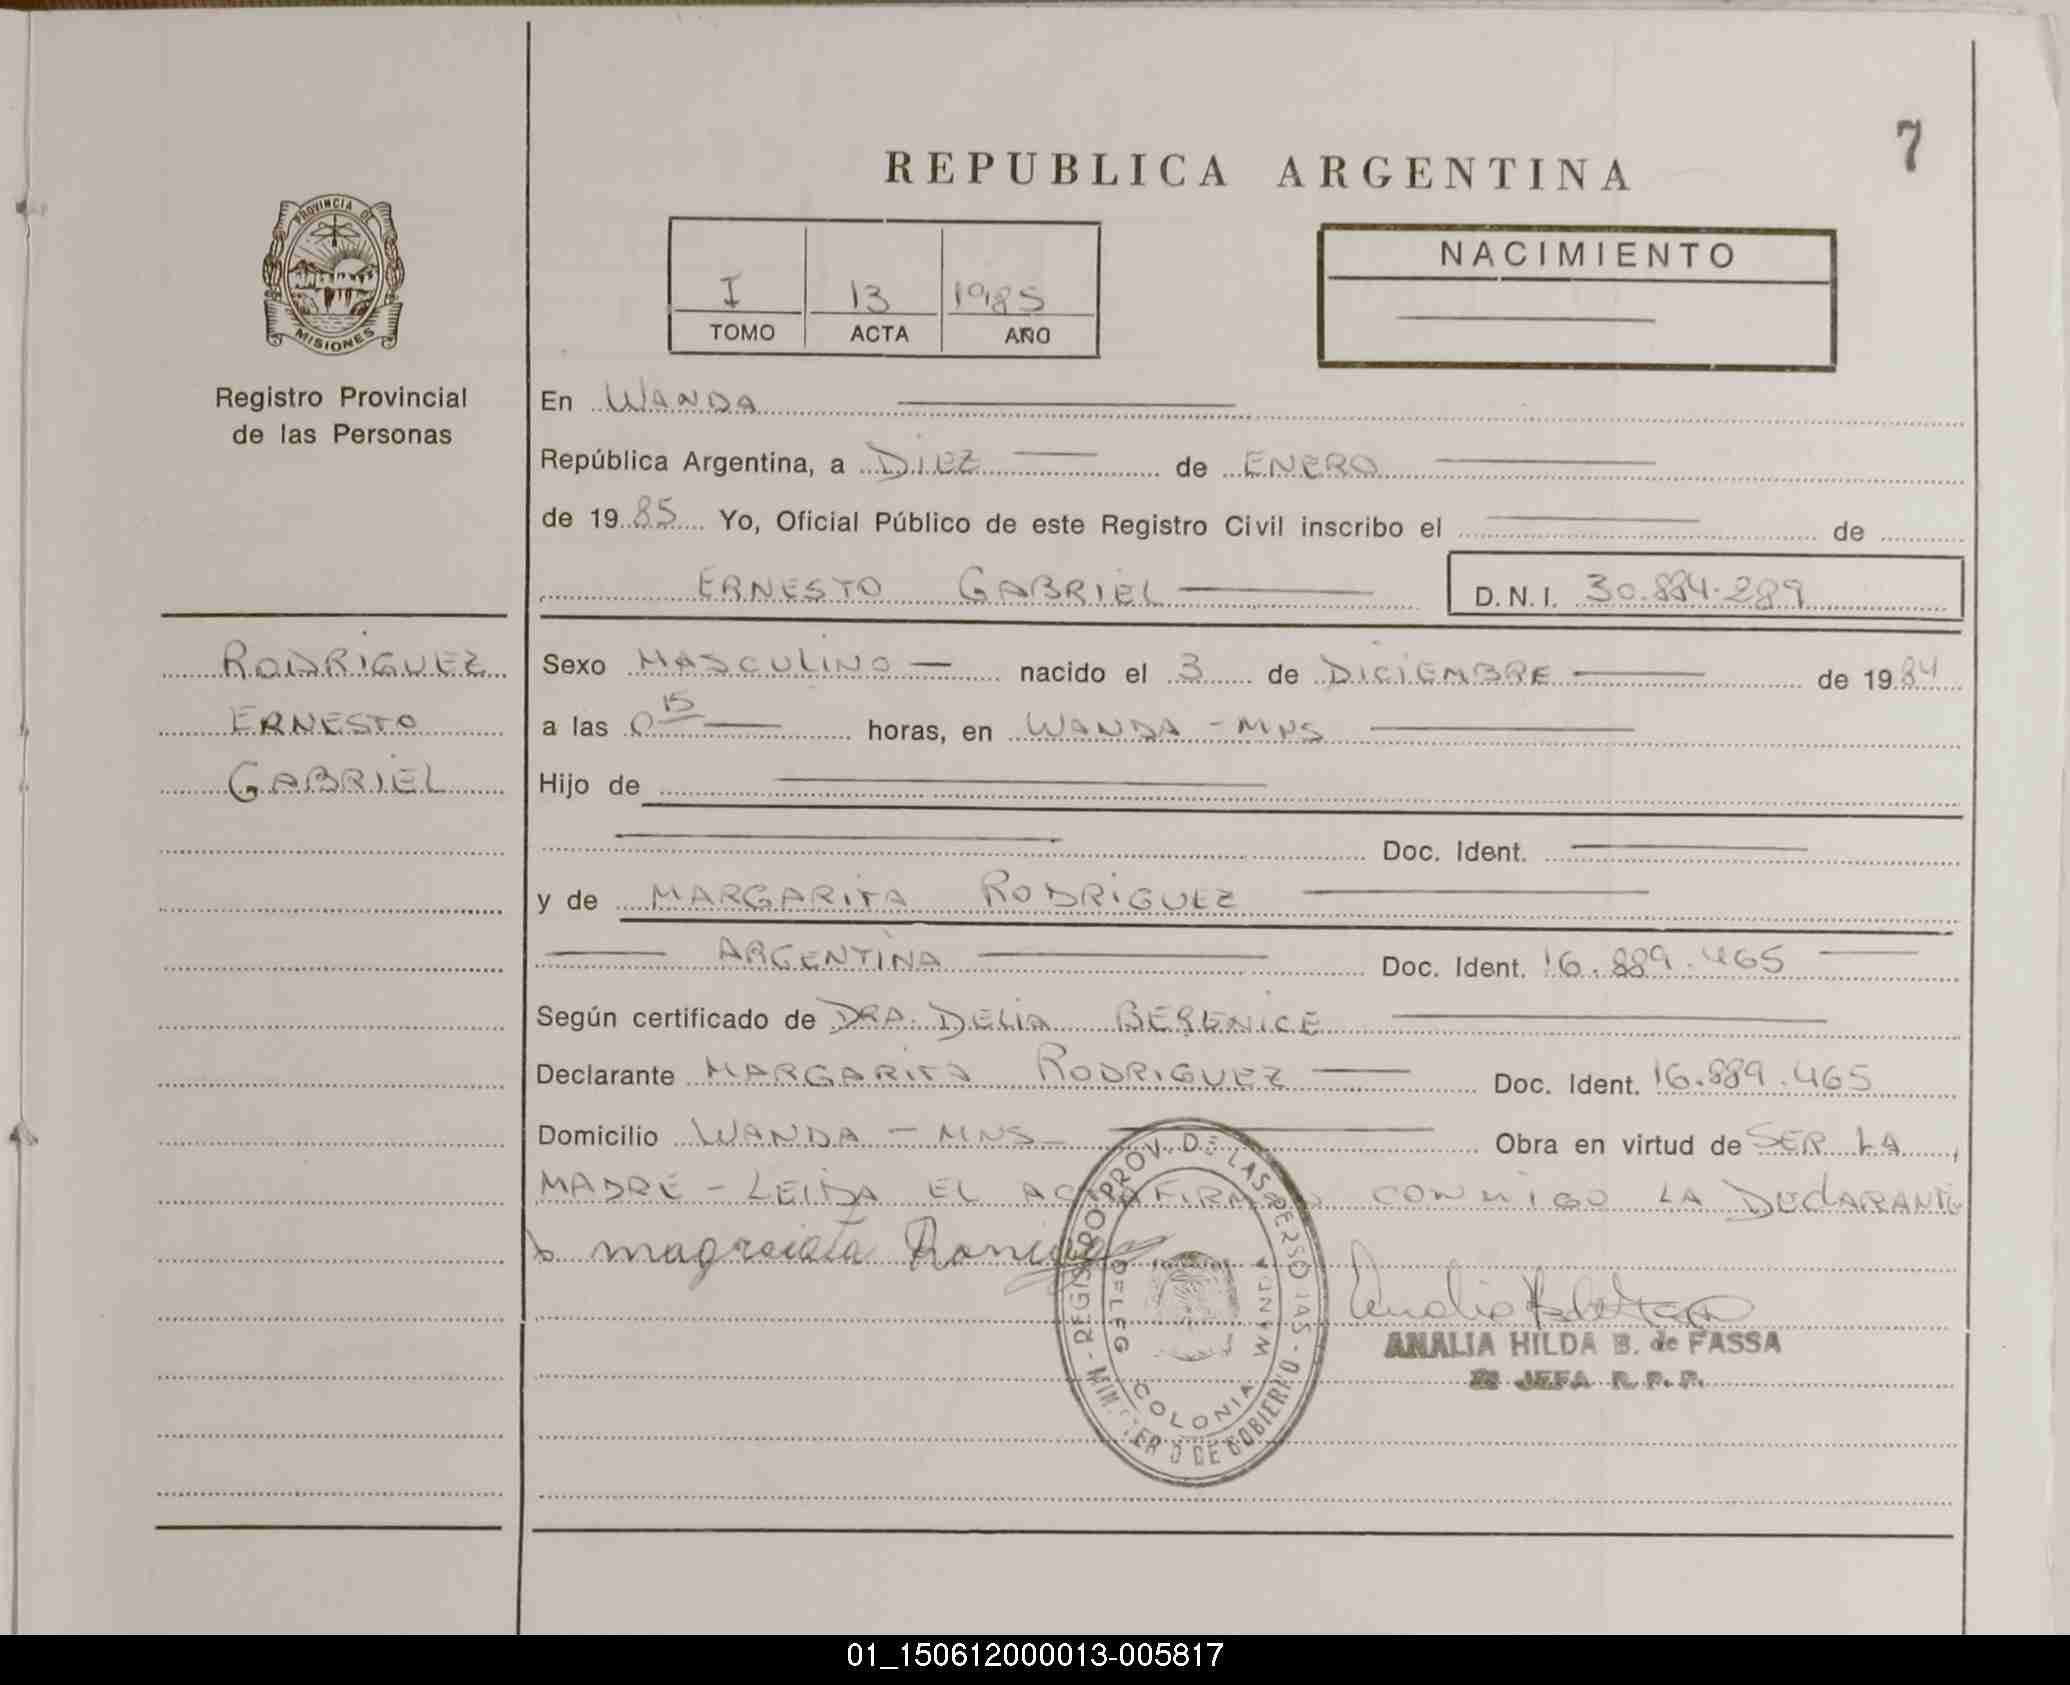 7
REPUBLICA ARGENTINA
PROVINCIA DE
MISIONES
Registro Provincial
de las Personas
I 13 1985
TOMO ACTA AÑO
NACIMIENTO
En WANDA
República Argentina, a DIEZ de ENERO
de 1985 Yo, Oficial Público de este Registro Civil inscribo el de
ERNESTO GABRIEL D.N.I. 30.884.289
RODRIGUEZ
ERNESTO
GABRIEL
Sexo MASCULINO nacido el 3 de DICIEMBRE de 1984
a las 0 15 horas, en WANDA - MNS
Hijo de
Doc. Ident.
y de MARGARITA RODRIGUEZ
ARGENTINA Doc. Ident. 16.889.465
Según certificado de DRA. DELIA BERENICE
Declarante MARGARITA RODRIGUEZ Doc. Ident. 16.889.465
Domicilio WANDA - MNS Obra en virtud de SER LA
MADRE - LEIDA EL ACTA FIRMA CONMIGO LA DECLARANTE
REGISTRO PROV. DE LAS PERSONAS - MINISTERIO DE GOBIERNO
DELEG COLONIA WANDA
ANALIA HILDA B. de FASSA
JEFA R. P. P.
01_150612000013-005817